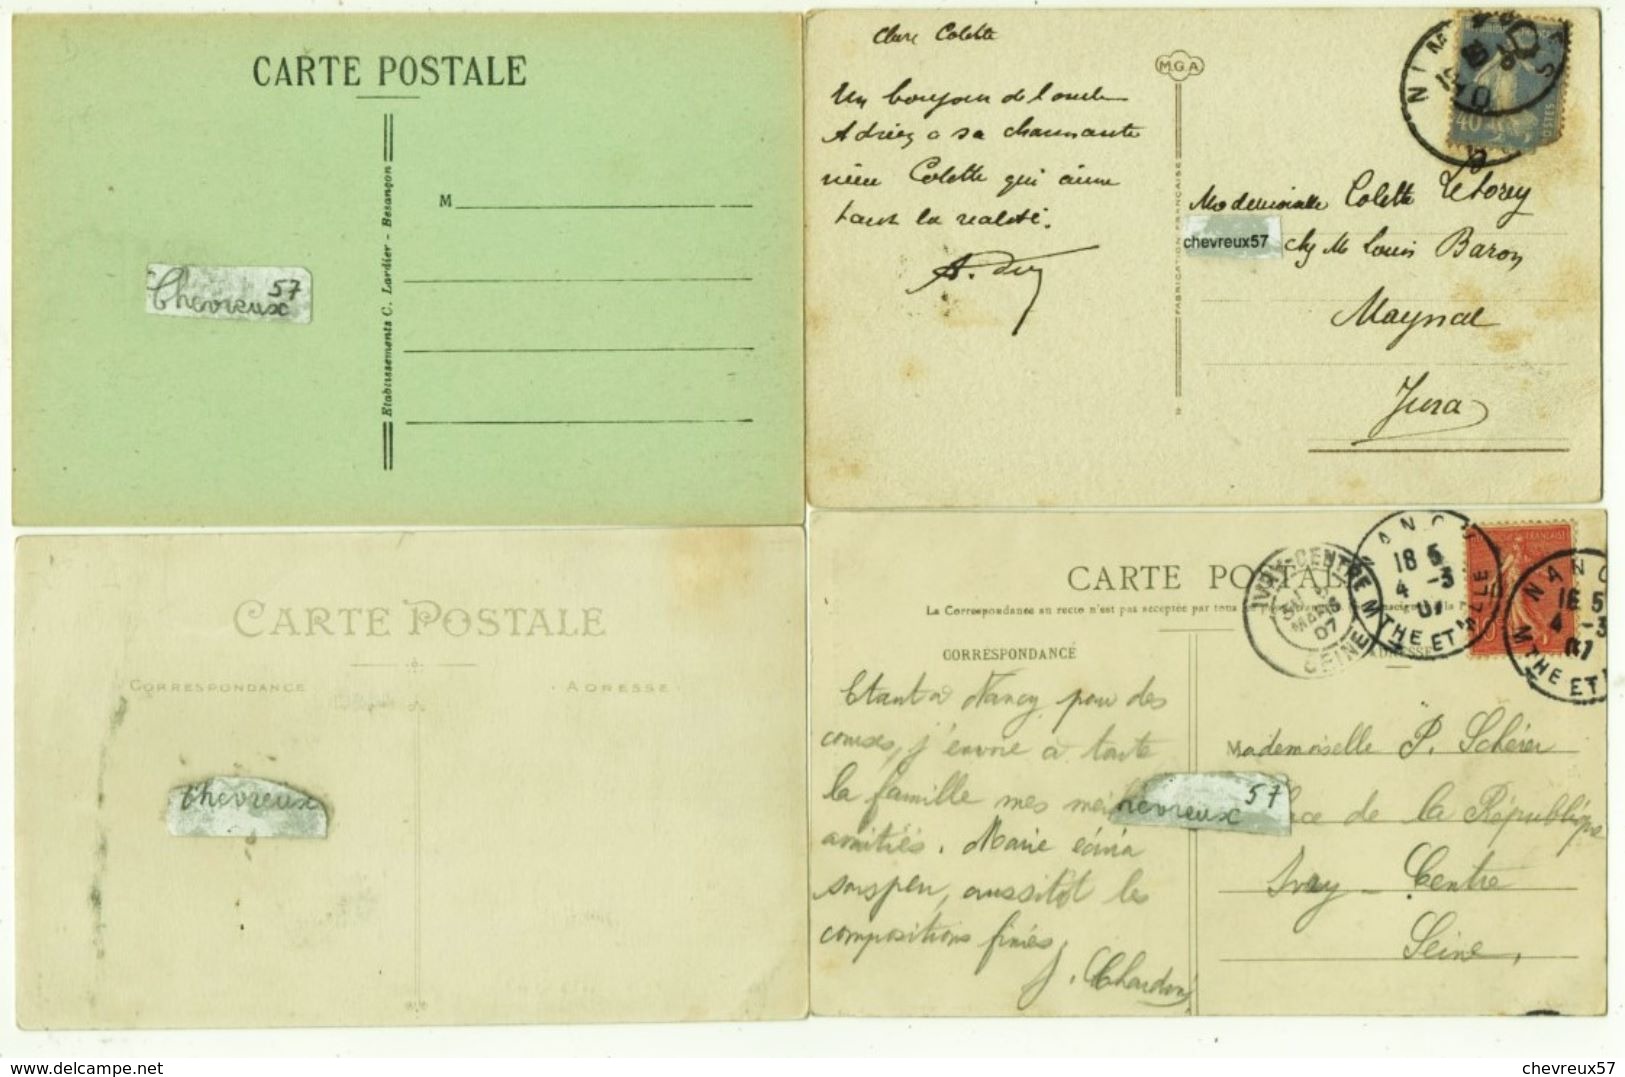 CARTE POSTALE
M
Etablissements C. Lardier - Besançon
Chevreux 57
Chere Colette
Un bonjour de l'oncle
Adrien a sa charmante
nièce Colette qui aime
tant la
M.G.A
FABRICATION FRANÇAISE
NIMES
40
POSTES
Mademoiselle Colette
chevreux57 chez Mr Louis Baron
Maynal
Jura
CARTE POSTALE
CORRESPONDANCE
ADRESSE
Chevreux
CARTE POSTALE
La Correspondance au recto n'est pas acceptée par tous
CORRESPONDANCE
ADRESSE
IVRY-CENTRE
MARS
07
SEINE
NANCY
18 5
4 -3
07
MTHE ET MLLE
NANC
18 5
4 -3
07
MTHE ET
Etant à Nancy pour des
courses, j'envoie à toute
la famille mes
amitiés. Marie écrira
sous peu, aussitôt les
compositions finies
J. Chardin
Mademoiselle P. Schérer
chevreux 57
de la République
Ivry - Centre
Seine.
www.delcampe.net
chevreux57